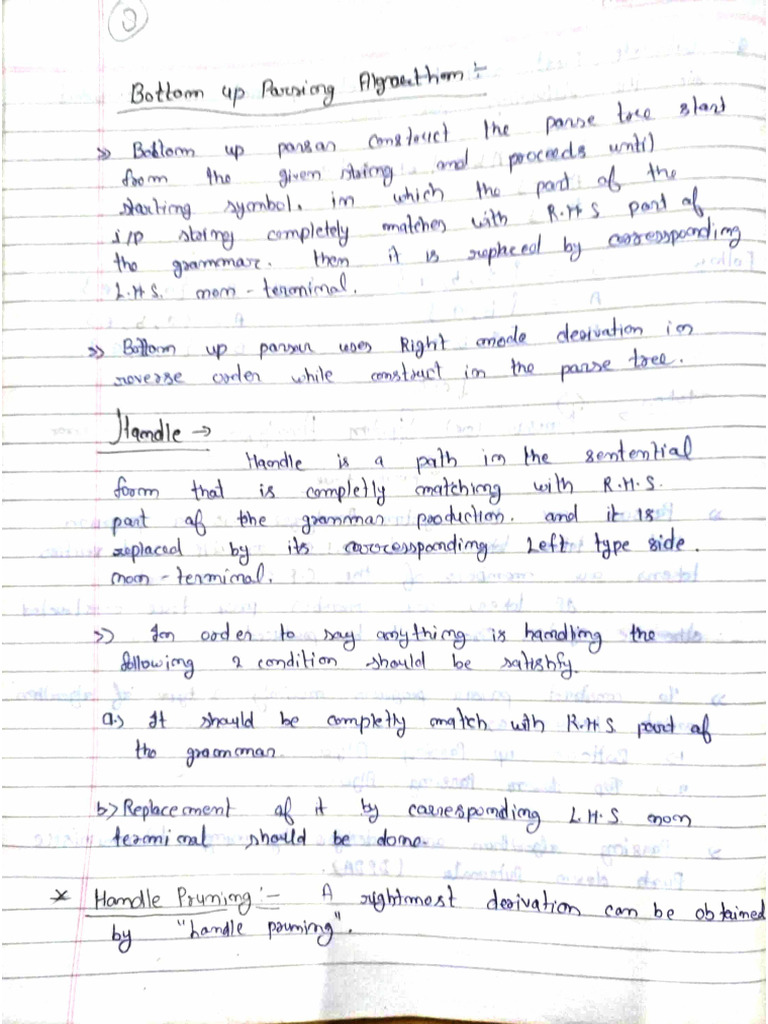 Bottom up Parsing Algorithm :-
>> Bottom up parser construct the parse tree start
from the given string and proceeds until
starting symbol. in which the part of the
i/p string completely matches with R.H.S part of
the grammar. then it is replaced by corresponding
L.H.S. non-terminal.
>> Bottom up parser uses Right mode derivation in
reverse order while construct in the parse tree.
Handle →
Handle is a path in the sentential
form that is completly matching with R.H.S.
part of the grammar production. and it is
replaced by its corresponding Left type side.
non-terminal.
>> In order to say anything is handling the
following 2 condition should be satisfy.
a.> It should be completly match with R.H.S part of
the grammar
b.> Replacement of it by corresponding L.H.S. non
terminal should be done.
* Handle Pruning :- A rightmost derivation can be obtained
by "handle pruning".